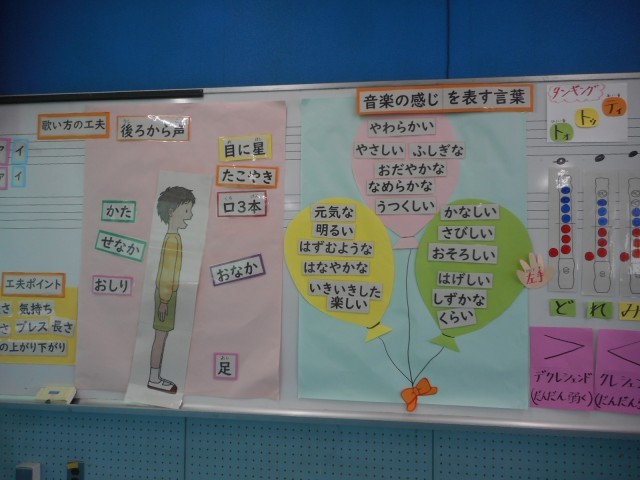 歌い方の工夫
後ろから声
目に星
たこやき
口3本
かた
せなか
おしり
おなか
足
工夫ポイント
気持ち
ブレス 長さ
の上がり下がり
音楽の感じ を表す言葉
やわらかい
やさしい ふしぎな
おだやかな
なめらかな
うつくしい
元気な
明るい
はずむような
はなやかな
いきいきした
楽しい
かなしい
さびしい
おそろしい
はげしい
しずかな
くらい
タンギング
ティ
トゥ
ど れ み
デクレシェンド
(だんだん弱く)